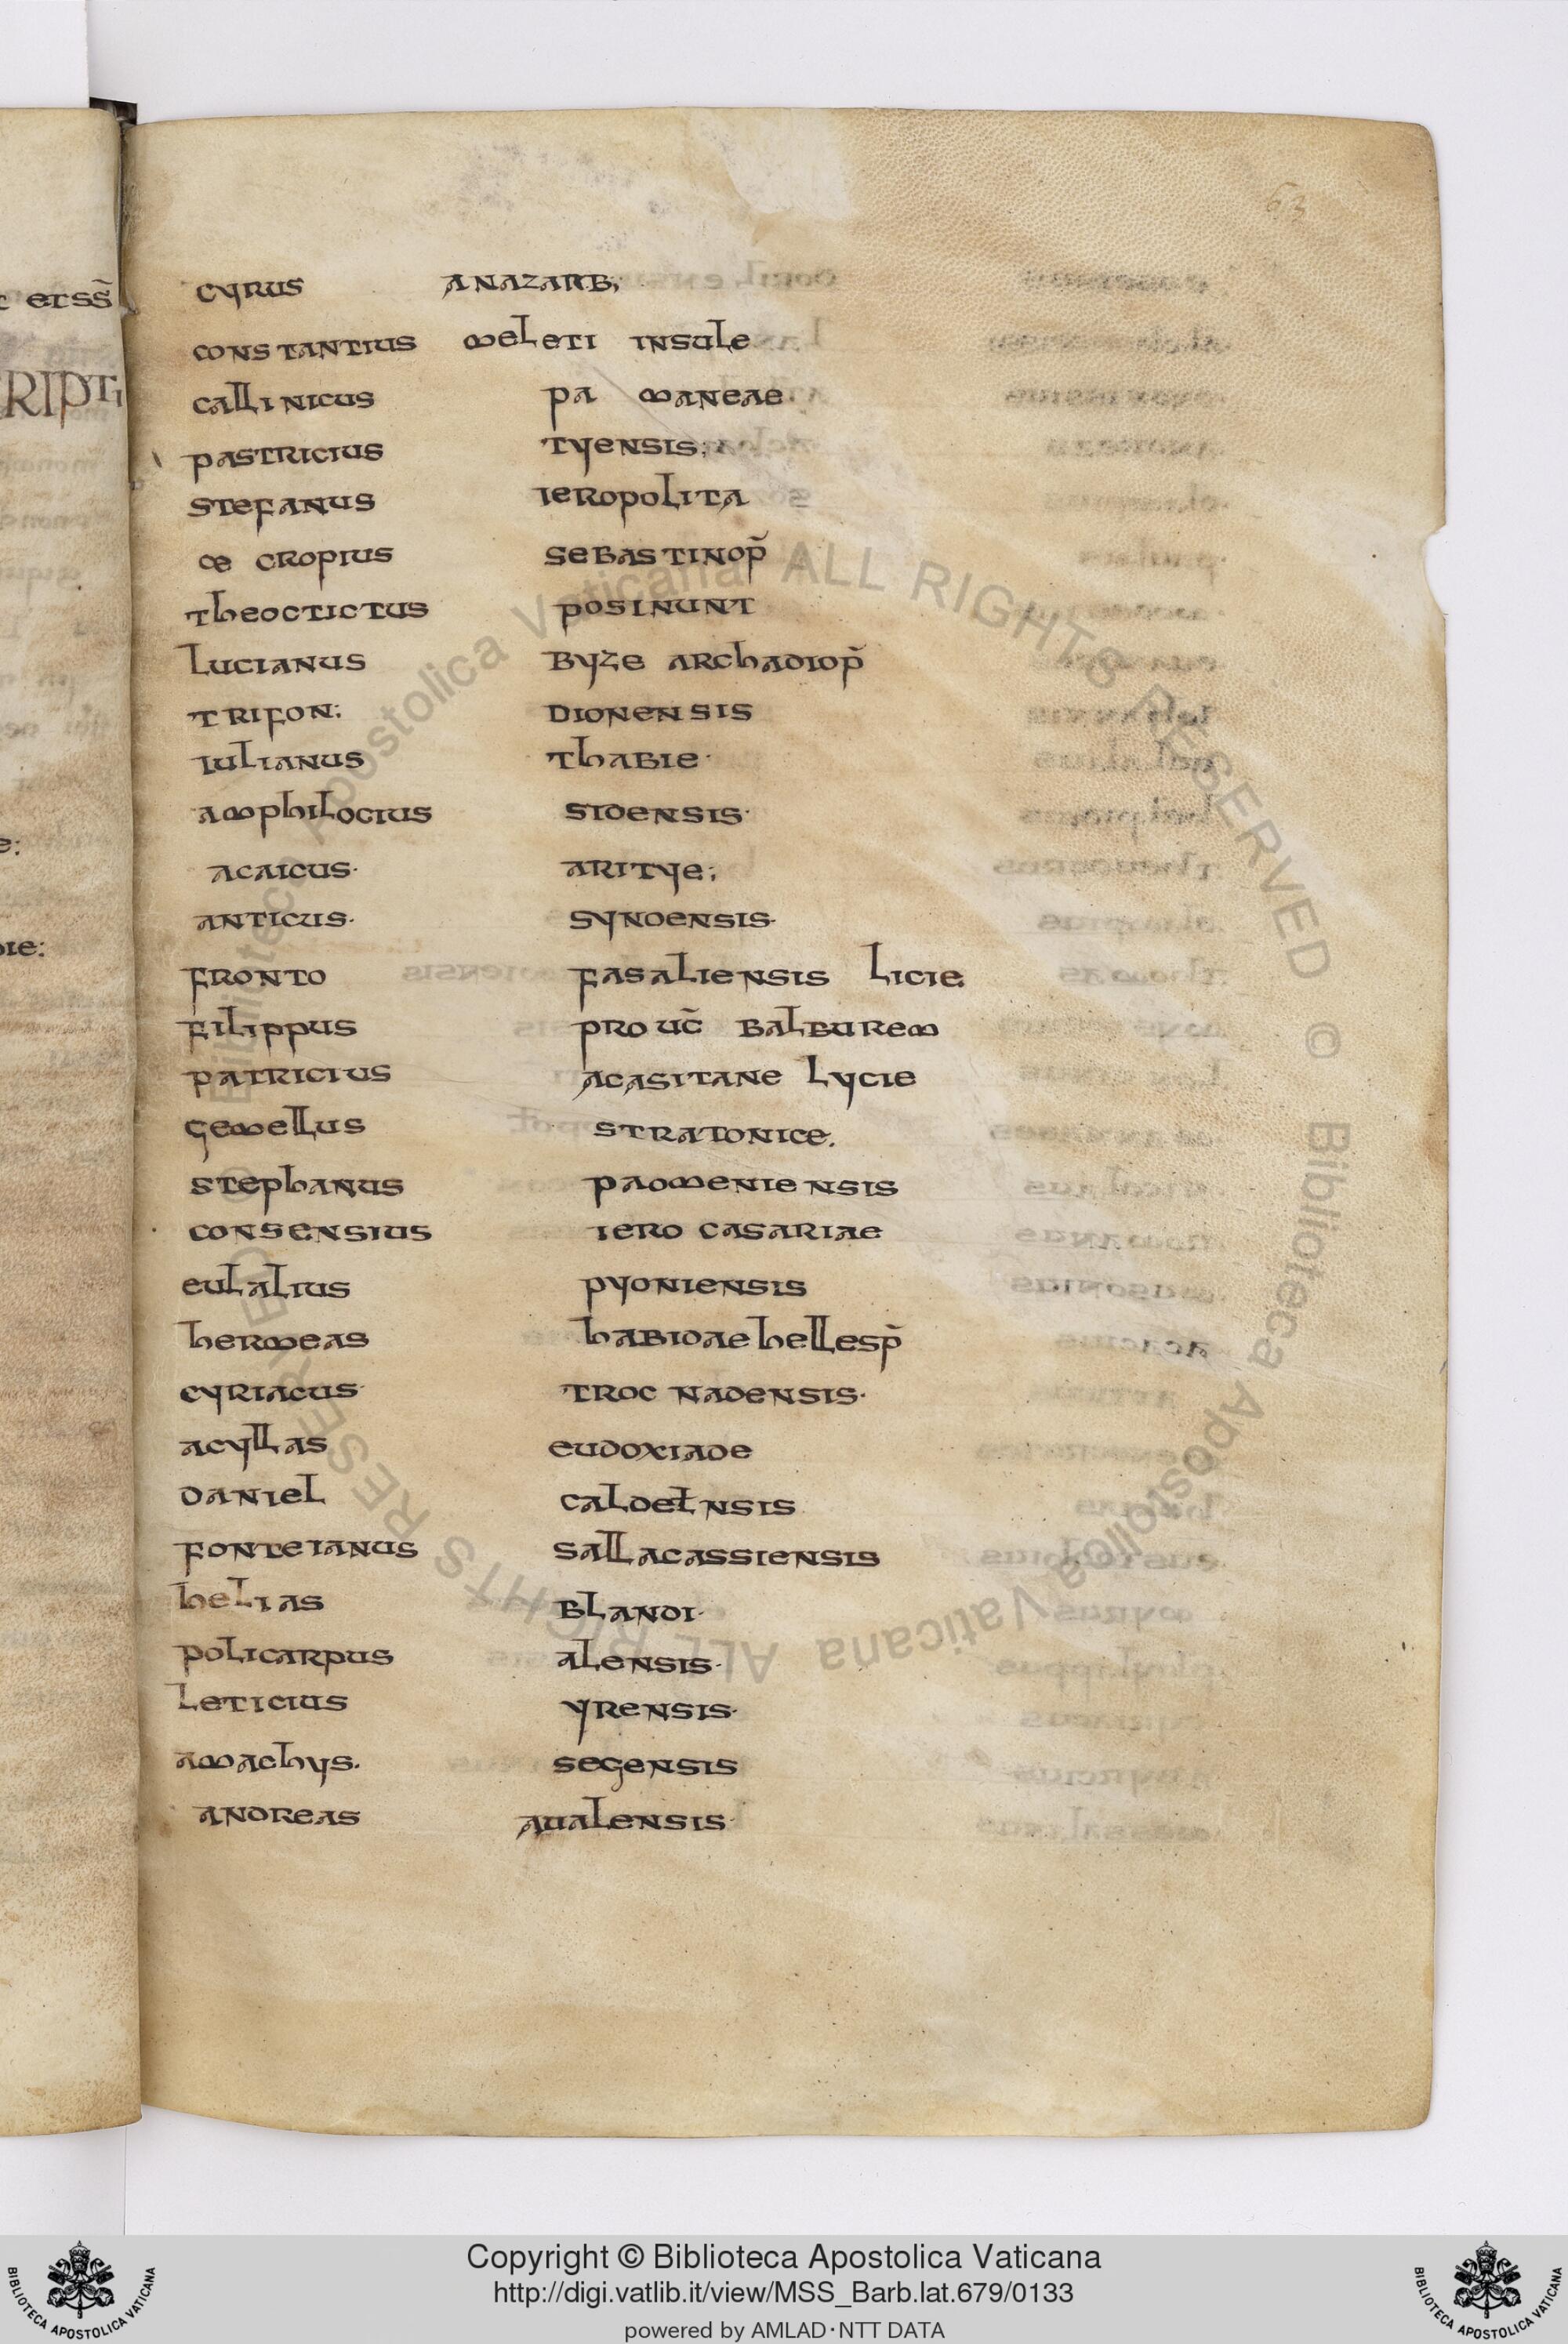 63
cyrus anazarb;
constantius meleti insule
callinicus pa maneae
pastricius tyensis;
stefanus ieropolita
æ cropius sebastinop̃
theoctictus posinunt
lucianus byze archadiop̃
trifon: dionensis
iulianus thabie·
amphilocius sidensis·
acaicus· aritye;
anticus· synoensis·
fronto fasaliensis licie
filippus prouc̃ balburem
patricius acasitane lycie
gemellus stratonice.
stephanus padmeniensis
consensius iero casariae
eulalius pyoniensis
hermeas habidae hellesp̃
cyriacus troc nadensis·
acyllas eudoxiade
daniel caldetnsis
fonteianus sallacassiensis
helias blandi·
policarpus alensis·
leticius yrensis·
amachys. segensis
andreas aualensis·
Copyright © Biblioteca Apostolica Vaticana
http://digi.vatlib.it/view/MSS_Barb.lat.679/0133
powered by AMLAD·NTT DATA